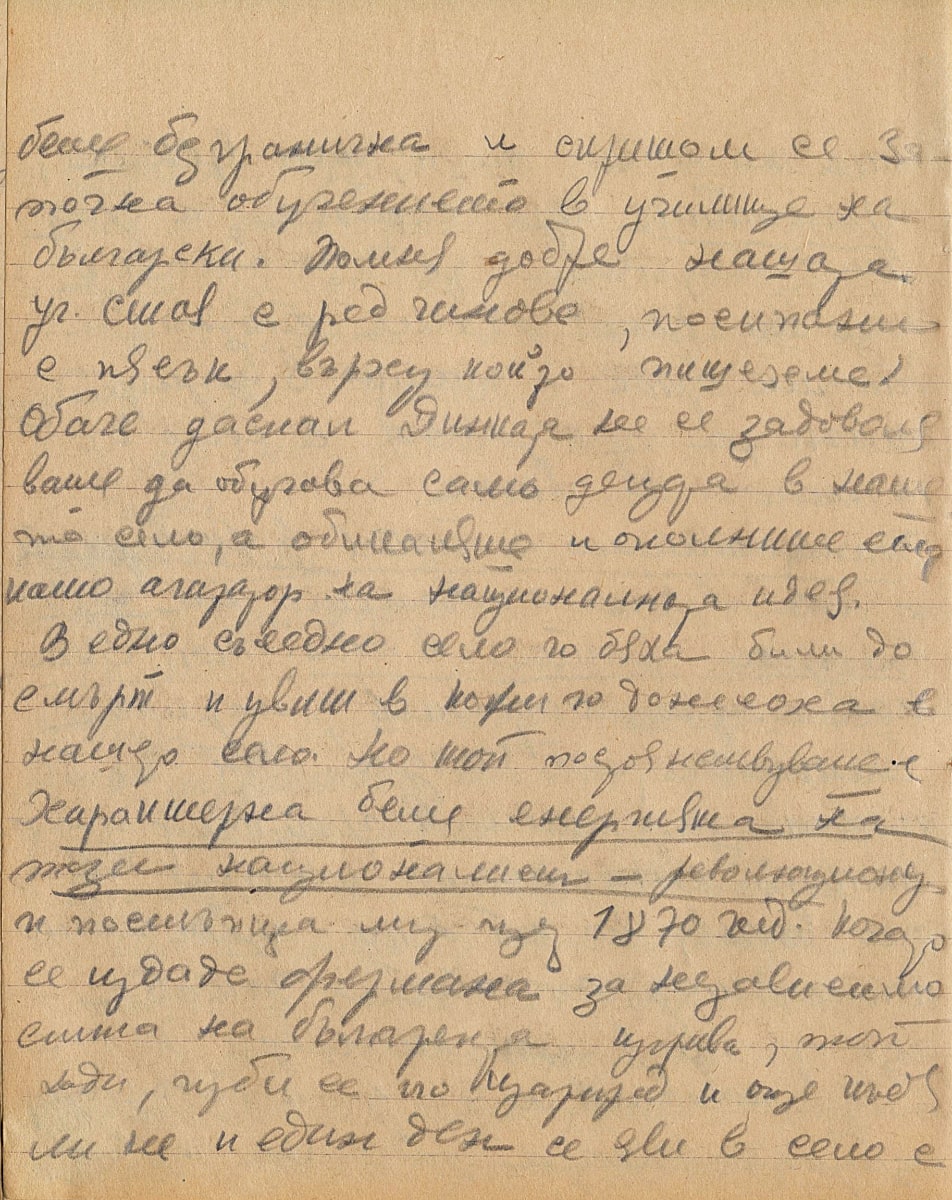 беше безгранична и скришом се за
почна обучението в училище на
български. Помня добре нашата
уч. стая с ред чинове, посипани
с пясък, върху който пишехме!
Обаче даскал Динката не се задоволя
ваше да обучава само децата в наше
то село, а обикаляше и околните села
като агитатор на националната идея.
В едно съседно село го бяха били до
смърт и увит в кожи го донесоха в
нашето село. Но той
Характерна беше енергията на
този националист - революционер
и постъпката му през 1870 год. когато
се издаде фермана за независимо
стта на българската църква, той
ходи, губи се по Цариград и още къде
ли не и един ден се яви в село с